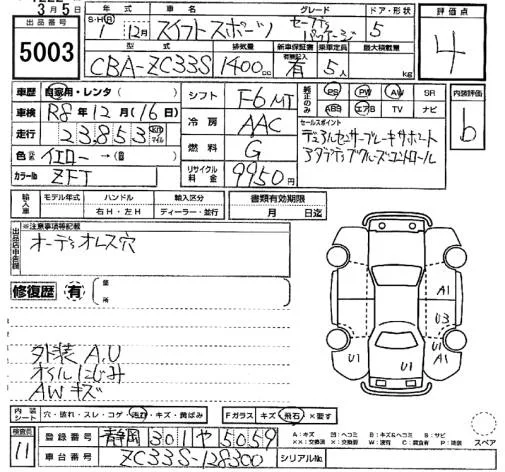 3月5日
出品番号
5003
年式 車名 グレード ドア・形状
S・H・R 1年 12月 スイフトスポーツ セーフティパッケージ 5
型式 排気量 新車保証書 乗車定員 最大積載量
CBA-ZC33S 1400cc 有 5人 kg
評価点
4
車歴 自家用・レンタ
車検 R8年12月(16日)
走行 23,853 km マイル
色 イエロー→(
カラーNo ZFT
シフト F6 MT
冷房 AAC
燃料 G
リサイクル料金 9950円
純正のみ PS PW AW SR
ABS エアB TV ナビ
セールスポイント
デュアルセンサーブレーキサポート
アダプティブクルーズコントロール
内装評価
b
輸入車 モデル年式 ハンドル 輸入区分
年 右H・左H ディーラー・並行
書類有効期限
月 日迄
※注意事項等記載
出品店申告欄
オーディオレス穴
修復歴 有 箇所
外装 A,U
オイルにじみ
AWキズ
A1
U3
U1
U1
A1
内装シート 穴・破れ・スレ・コゲ・汚れ・キズ・黄ばみ
Fガラス キズ・飛石・×要す
検査員
11
登録番号 静岡 301 や 5059
車台番号 ZC33S-128300 シリアルNo.
A:キズ 凹:ヘコミ B:キズ&ヘコミ S:サビ
スペア